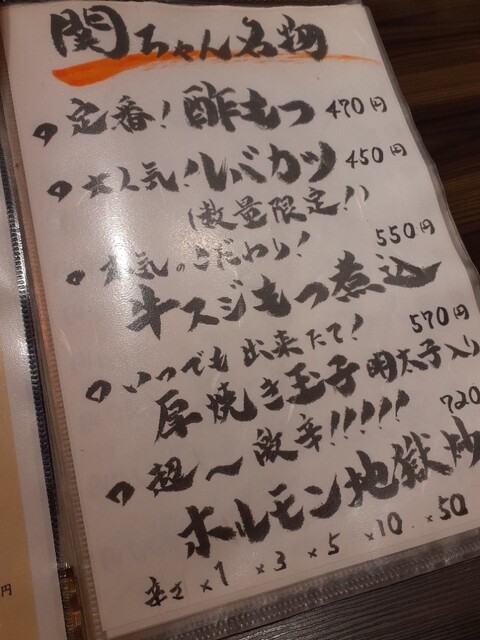 関ちゃん名物
定番!酢もつ 470円
大人気!レバカツ 450円
(数量限定!)
本気のこだわり! 550円
牛スジもつ煮込
いつでも出来たて! 570円
厚焼き玉子 明太子入り
超〜激辛!!!!! 720
ホルモン地獄炒
辛さ ×1 ×3 ×5 ×10 ×50
円